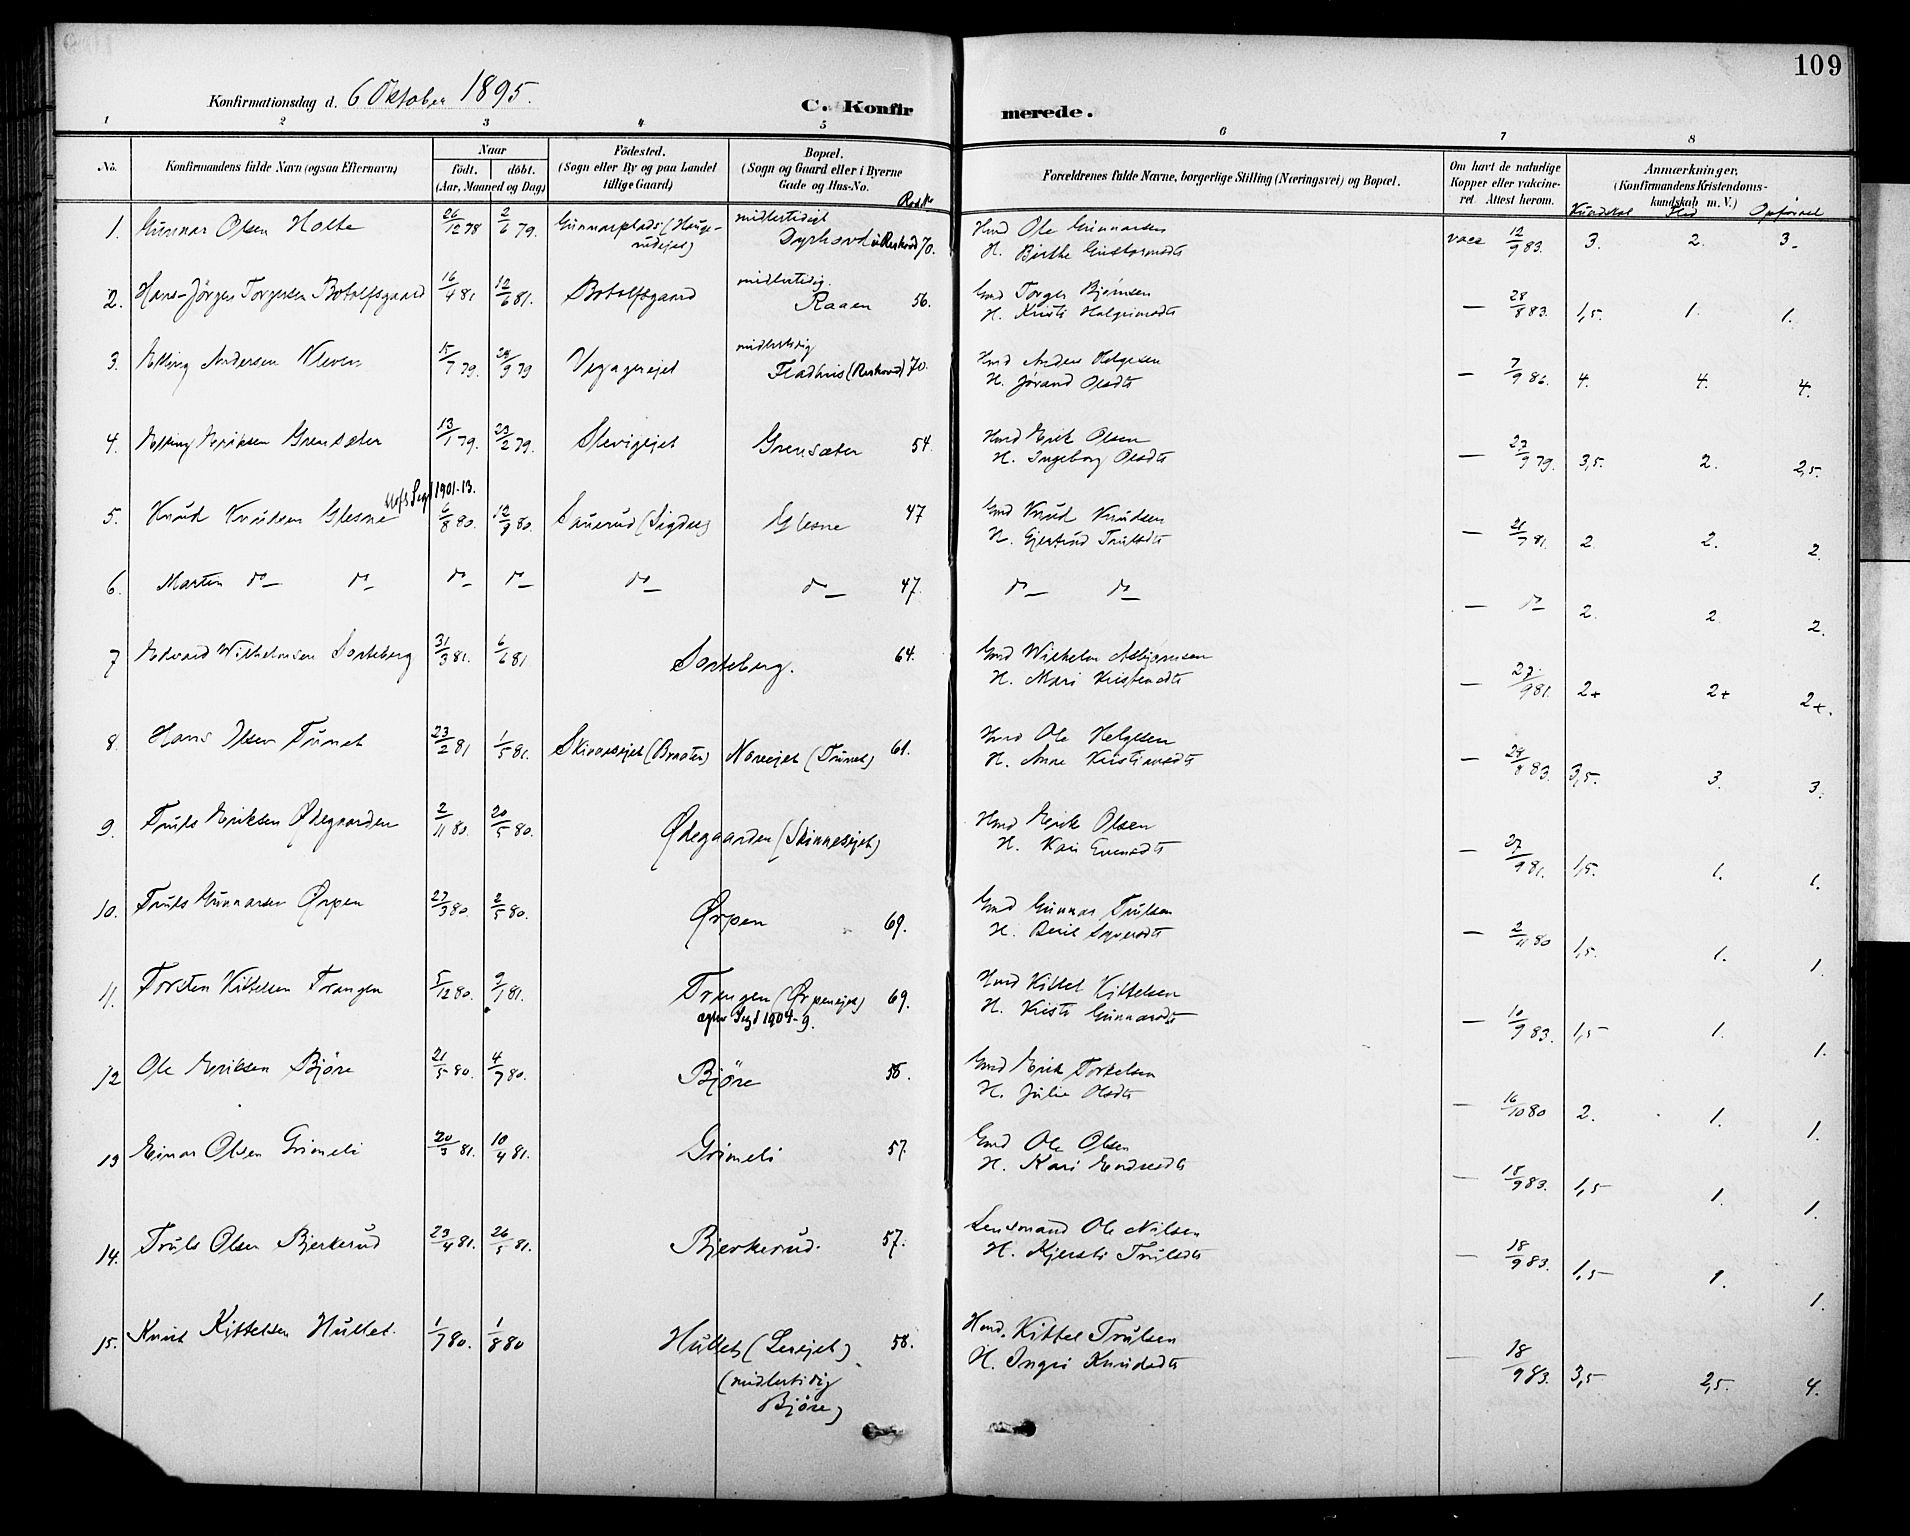 109
Konfirmationsdag d. 6 Oktober 1895.
C. Konfirmerede.
1 2 3 4 5 6 7 8
No. Konfirmandens fulde Navn (ogsaa Efternavn) Naar födt. döbt. (Aar, Maaned og Dag) Födested. (Sogn eller By og paa Landet tillige Gaard) Bopæl. (Sogn og Gaard eller i Byerne Gade og Hus-No. Forældrenes fulde Navne, borgerlige Stilling (Næringsvei) og Bopæl. Om havt de naturlige Kopper eller vakcineret. Attest herom. Anmærkninger. (Konfirmandens Kristendomskundskab m. V.)
Kundskab Flid Opførsel
1. Gunnar Olsen Holte 26/12 78 2/6 79. Gunnarplads (Haugerudejet) midlertidigt Dyrhovd i Reskovd 70. Hmd Ole Gunnarsen
H. Birthe Gustavsdtr vacc 12/9 83. 3. 2. 3-
2. Hans-Jörgen Torgersen Botolfsgaard 16/4 81 12/6 81. Botolfsgaard midlertidig. Raaen 56. Gmd Torger Bjørnsen
H. Kristi Halgrimsdtr — 28/8 83. 1,5. 1. 1.
3. Elling Andersen Kleven 5/7 79. 29/9 79 midlertidig Fladhus (Reskovd) 70. Hmd Anders Helgesen
H. Jörand Olsdtr — 7/9 86. 4. 4. 4.
4. Elling Eriksen Grensæter 13/1 79. 23/2 79. Slevigejet Grensæter 54. Hmd Erik Olsen
H. Ingeborg Olsdtr — 27/9 79. 3,5. 2. 2,5.
5. Knud Knudsen Glesne 6/8 80. 12/9 80. Saurud (Sigdal) Glesne 47 Gmd Knud Knudsen
H. Gjertrud Trulsdtr — 21/7 81. 2. 2. 2.
6. Marten do do do do do do 47. do do — do 2. 2 2.
7 Edvard Wilhelmsen Sorteberg 31/3 81. 6/6 81. Sorteberg. 64. Gmd Wilhelm Asbjørnsen
H. Mari Kristensdtr — 27/9 81. 2+ 2+ 2+.
8. Hans Olsen Tunet 23/2 81 1/5 81. Skinnesejet (Braaten) Noreejet (Tunet) 61. Hmd Ole Helgesen
H. Anne Kristiansdtr — 29/8 83. 3,5. 3. 3.
9. Truls Eriksen Ødegaarden 2/11 80. 20/5 80. Ødegaarden (Skinnesejet) Hmd Erik Olsen
H. Kari Evensdtr — 27/9 81. 1,5. 1. 1.
10. Truls Gunnarsen Ørpen 27/3 80. 2/5 80. Ørpen 69. Gmd Gunnar Trulsen
H. Berit Syversdtr — 2/11 80 1,5. 1. 1.
11. Torsten Kittelsen Trangen 5/12 80. 9/1 81. Trangen (Ørpenejet) 69. Hmd Kittel Kittelsen
H. Kristi Gunnarsdtr — 10/9 83. 1,5 1. 1.
12 Ole Eriksen Björe 21/5 80. 4/7 80. Björe 58. Gmd Erik Torkelsen
H. Julie Olsdtr — 16/10 80 2. 1. 1.
13 Einar Olsen Grimeli 20/3 81. 10/4 81. Grimeli 57. Gmd Ole Olsen
H. Kari Endresdtr — 18/9 83. 1,5 1. 1.
14. Truls Olsen Bjerkerud 23/4 81. 26/5 81. Bjerkerud. 57. Lensmand Ole Nilsen
H. Kjersti Trulsdtr — 18/9 83. 1,5 1. 1.
15. Knut Kittelsen Hullet. 1/7 80. 1/8 80 Hullet (Lerejet) 58. Hmd. Kittel Trulsen
(midlertidig Björe) H. Ingri Knudsdtr — 18/9 83. 3,5 2,5. 4.